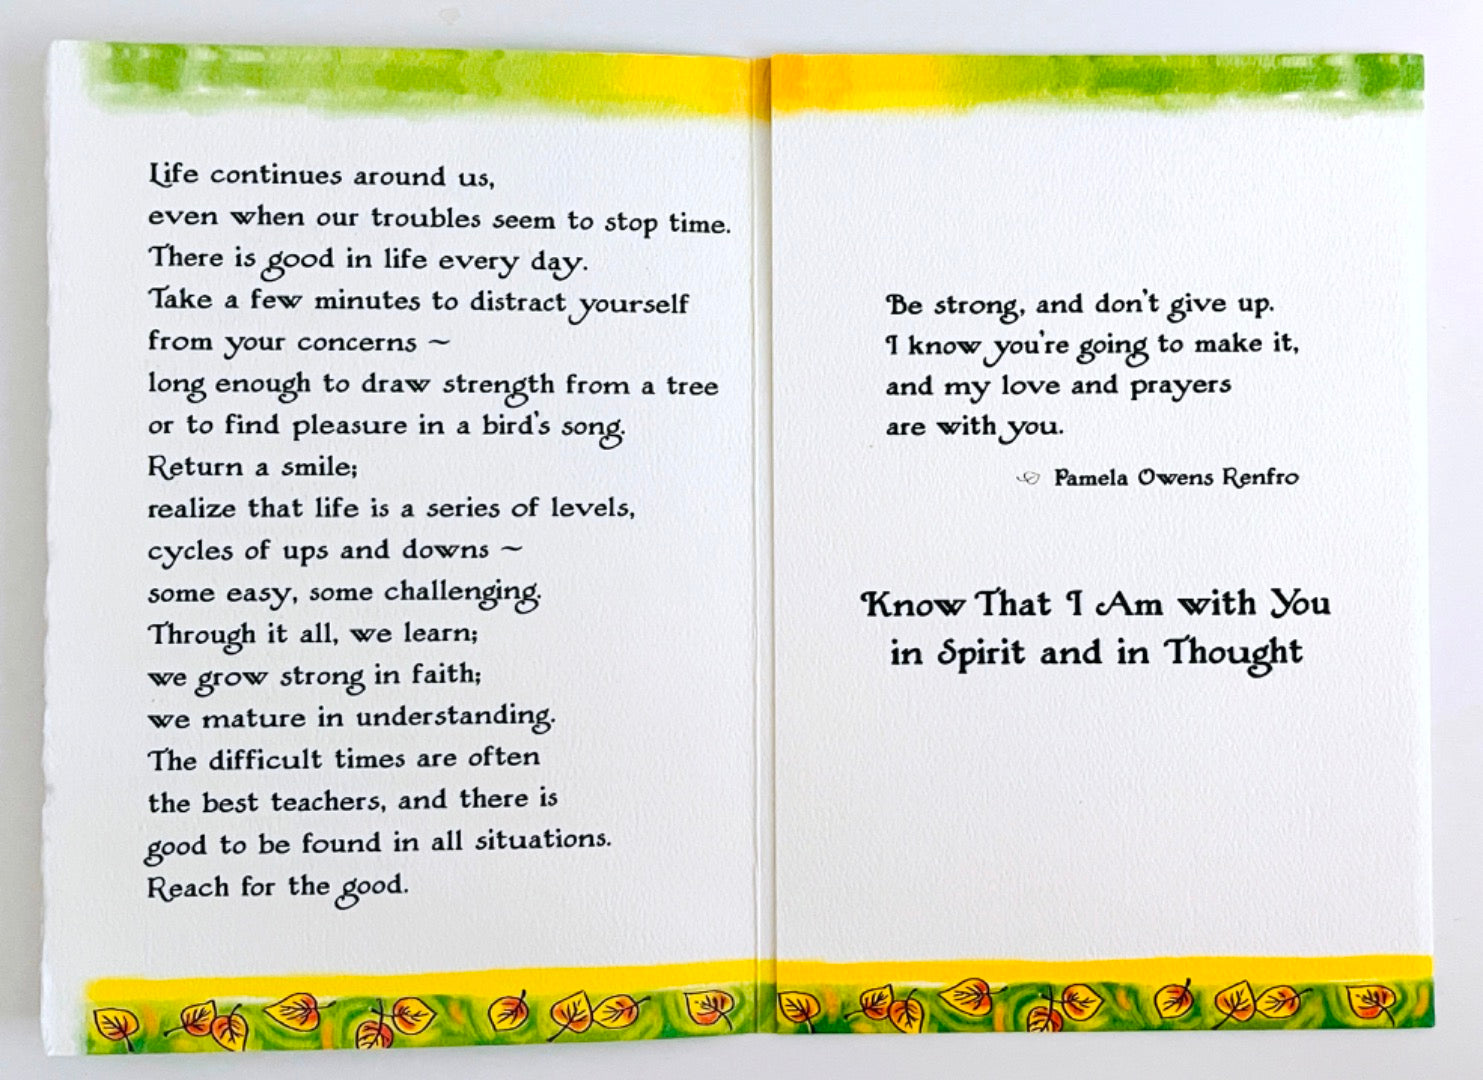 Life continues around us,
even when our troubles seem to stop time.
There is good in life every day.
Take a few minutes to distract yourself
from your concerns ~
long enough to draw strength from a tree
or to find pleasure in a bird's song.
Return a smile;
realize that life is a series of levels,
cycles of ups and downs ~
some easy, some challenging.
Through it all, we learn;
we grow strong in faith;
we mature in understanding.
The difficult times are often
the best teachers, and there is
good to be found in all situations.
Reach for the good.
Be strong, and don't give up.
I know you're going to make it,
and my love and prayers
are with you.
Pamela Owens Renfro
Know That I Am with You
in Spirit and in Thought